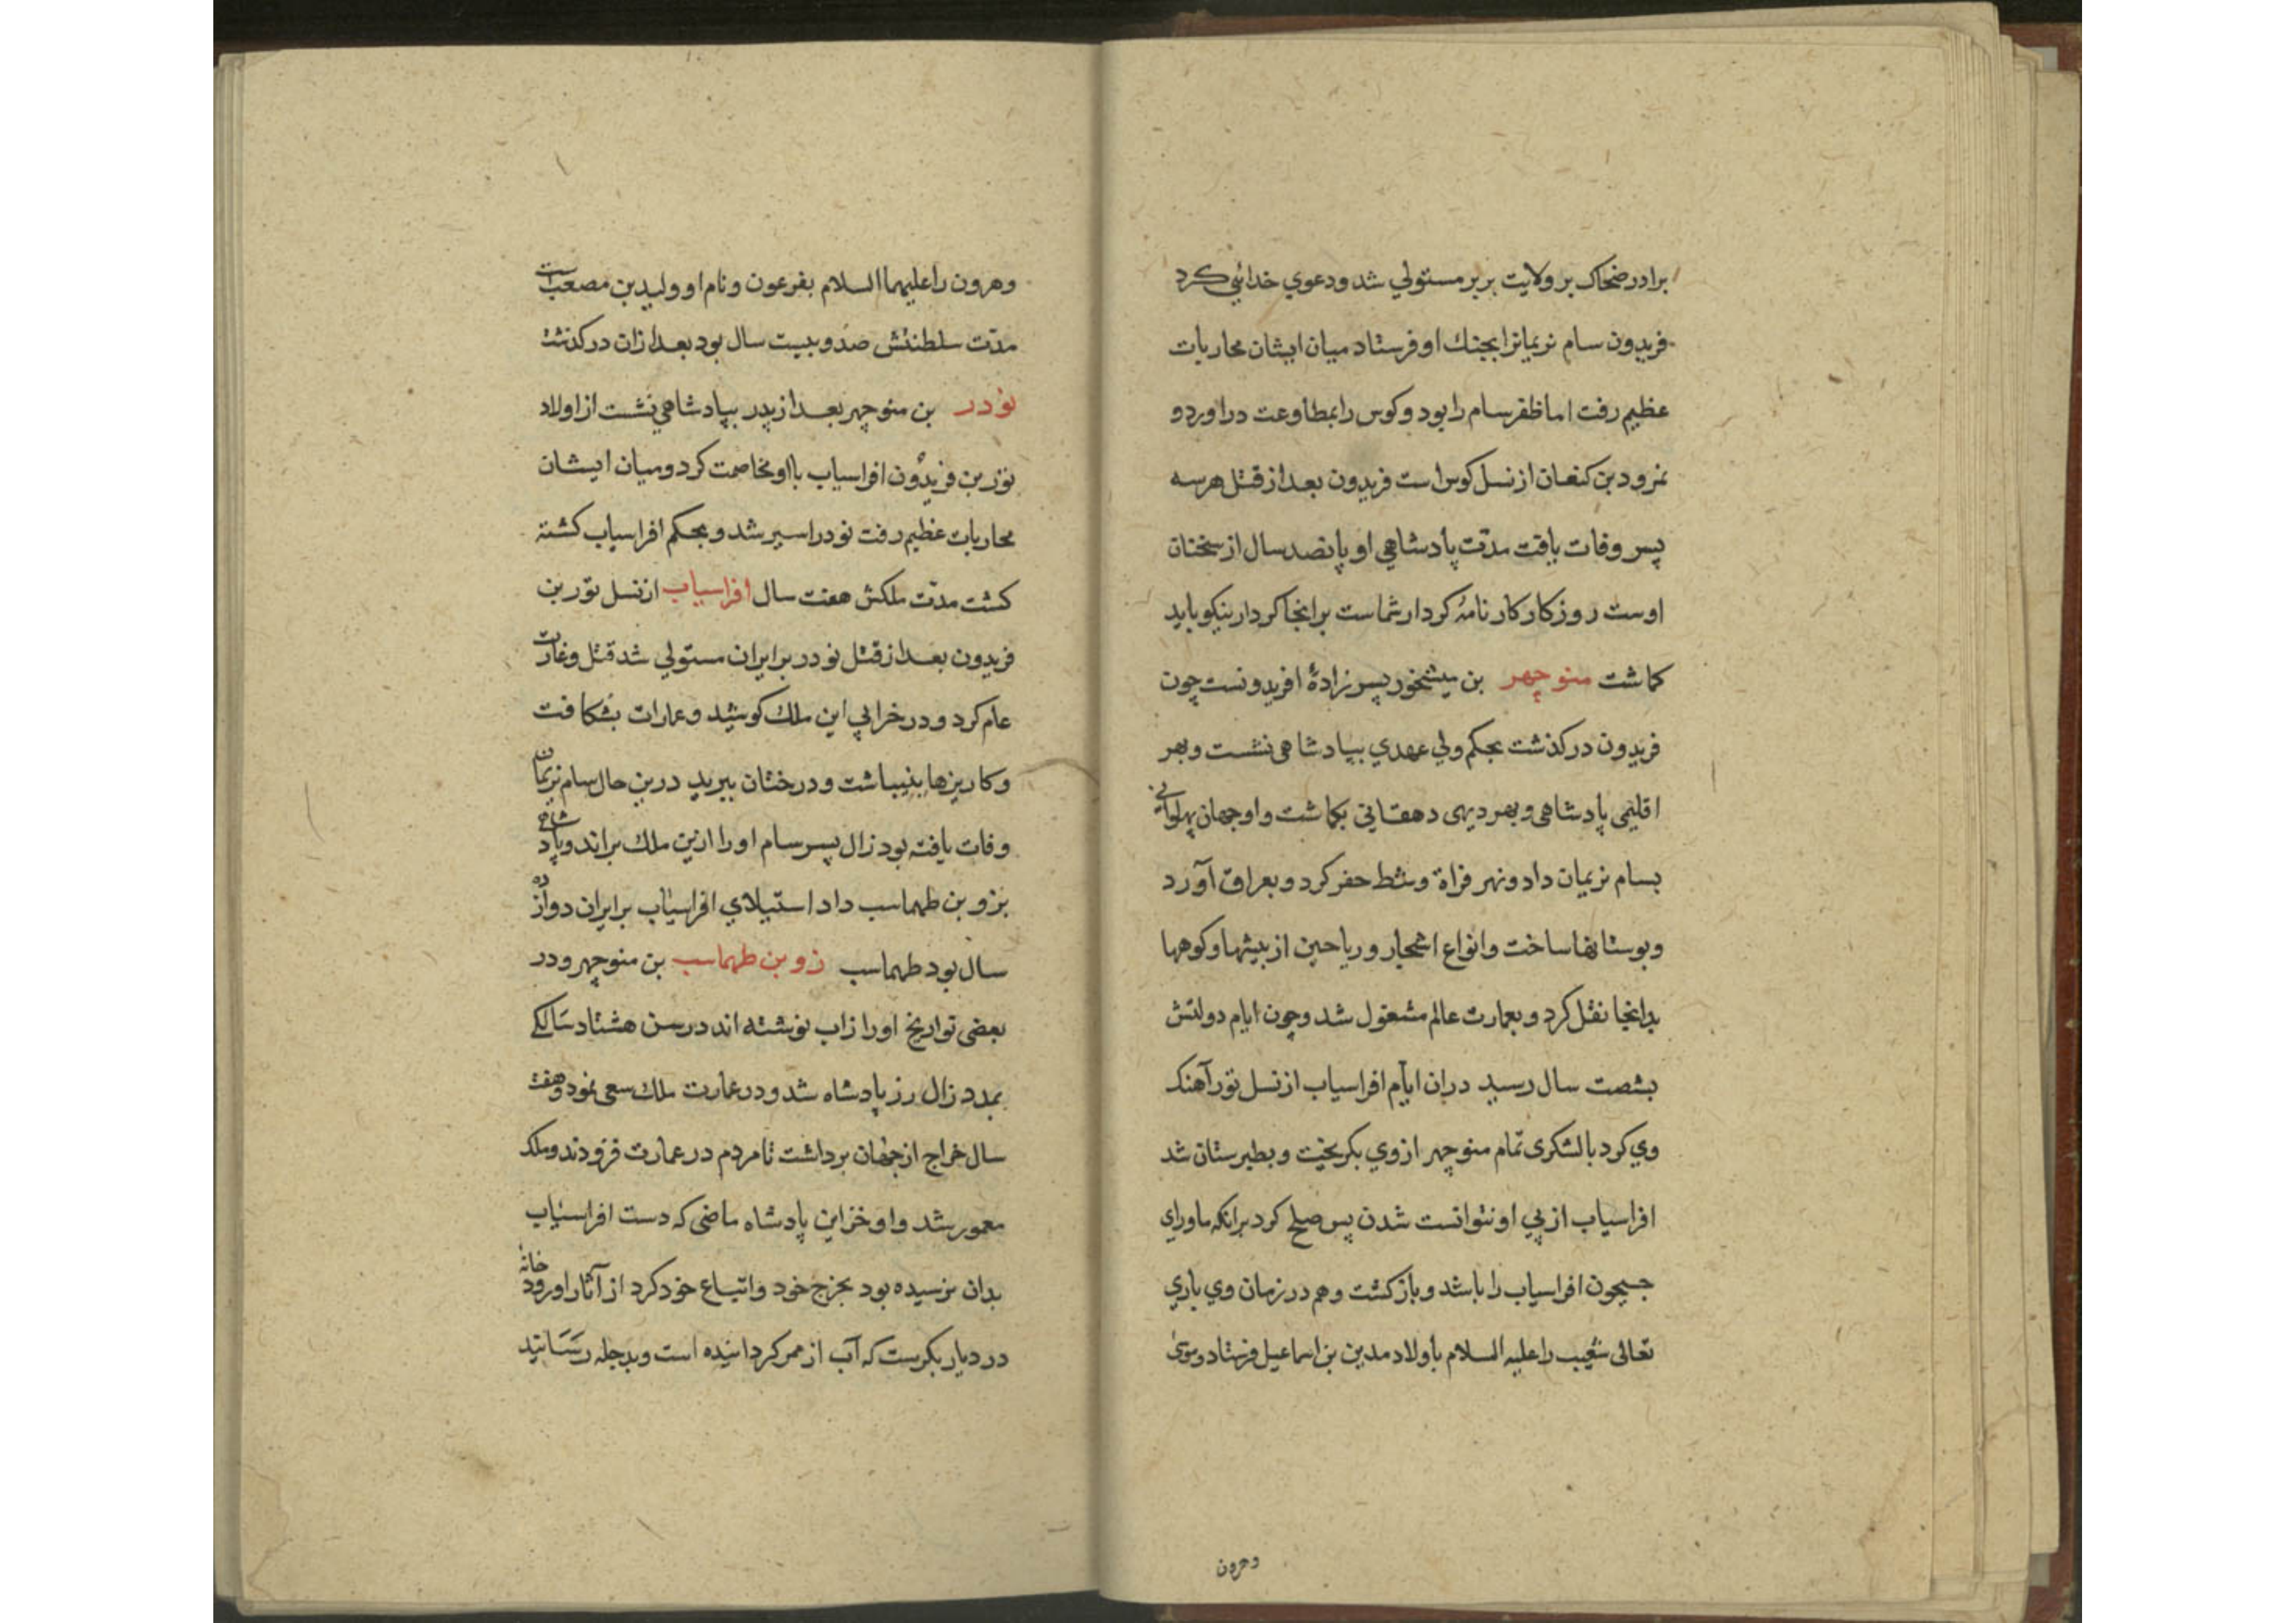 برادر ضحاک بر ولایت بربر مستولي شد ودعوي خدائي کرد
فریدون سام نریمانرا بجنك او فرستاد میان ایشان محاربات
عظیم رفت اما ظفر سام را بود وکوس را بمطاوعت دراورد و
نمرود بن کنعان از نسل کوس است فریدون بعد از قتل هر سه
پسر وفات یافت مدّت پادشاهي او پانصد سال از سخنان
اوست روزکار کارنامهٔ کردار شماست برانجا کردار نیکو باید
کماشت منوچهر بن میشخور پسرزادهٔ افریدونست چون
فریدون درکذشت بحکم ولي عهدي بپادشاهی نشست وبهر
اقلیمی پادشاهی وبهر دیهی دهقانی بکماشت واو جهان پهلوانی
بسام نریمان داد ونهر فراة وشط حفر کرد وبعراق آورد
وبوستانها ساخت وانواع اشجار وریاحین از بیشها وکوهها
بدانجا نقل کرد وبعمارت عالم مشغول شد وچون ایام دولتش
بشصت سال رسید دران ایّام افراسیاب از نسل تور آهنك
وي کرد با لشکری تمام منوچهر از وي بکریخت وبطبرستان شد
افراسیاب از پي او نتوانست شدن پس صلح کرد برانکه ماورای
جیحون افراسیاب را باشد وبازکشت وهم در زمان وي باري
تعالی شعیب را علیه السلام باولاد مدین بن اسماعیل فرستاد وموسی
وهرون
وهرون را علیهما السلام بفرعون ونام او ولید بن مصعب است
مدّت سلطنتش صد وبیست سال بود بعد ازان درکذشت
نودر بن منوچهر بعد از پدر بپادشاهي نشست از اولاد
تور بن فریدون افراسیاب با او مخاصمت کرد ومیان ایشان
محاربات عظیم رفت نودر اسیر شد وبحکم افراسیاب کشته
کشت مدّت ملکش هفت سال افراسیاب از نسل تور بن
فریدون بعد از قتل نودر بر ایران مستولي شد قتل وغارت
عام کرد ودر خرابي این ملك کوشید وعمارات بشکافت
وکاریزها بنیباشت ودرختان ببرید درین حال سام نریمان
وفات یافته بود زال پسر سام او را ازین ملك براند وپادشاهی
بزو بن طهماسب داد استیلاي افراسیاب بر ایران دوازده
سال بود طهماسب زو بن طهماسب بن منوچهر ودر
بعضی تواریخ او را زاب نوشته اند در سن هشتاد سالکی
بمدد زال زر پادشاه شد ودر عمارت ملك سعی نمود وهفت
سال خراج از جهان برداشت تا مردم در عمارت فزودند وملك
معمور شد واو خزاین پادشاه ماضی که دست افراسیاب
بدان نرسیده بود بخرج خود واتباع خود کرد از آثار او رودخانهٔ
در دیار بکرست که آب از ممر کردانیده است وبدجله رسانید